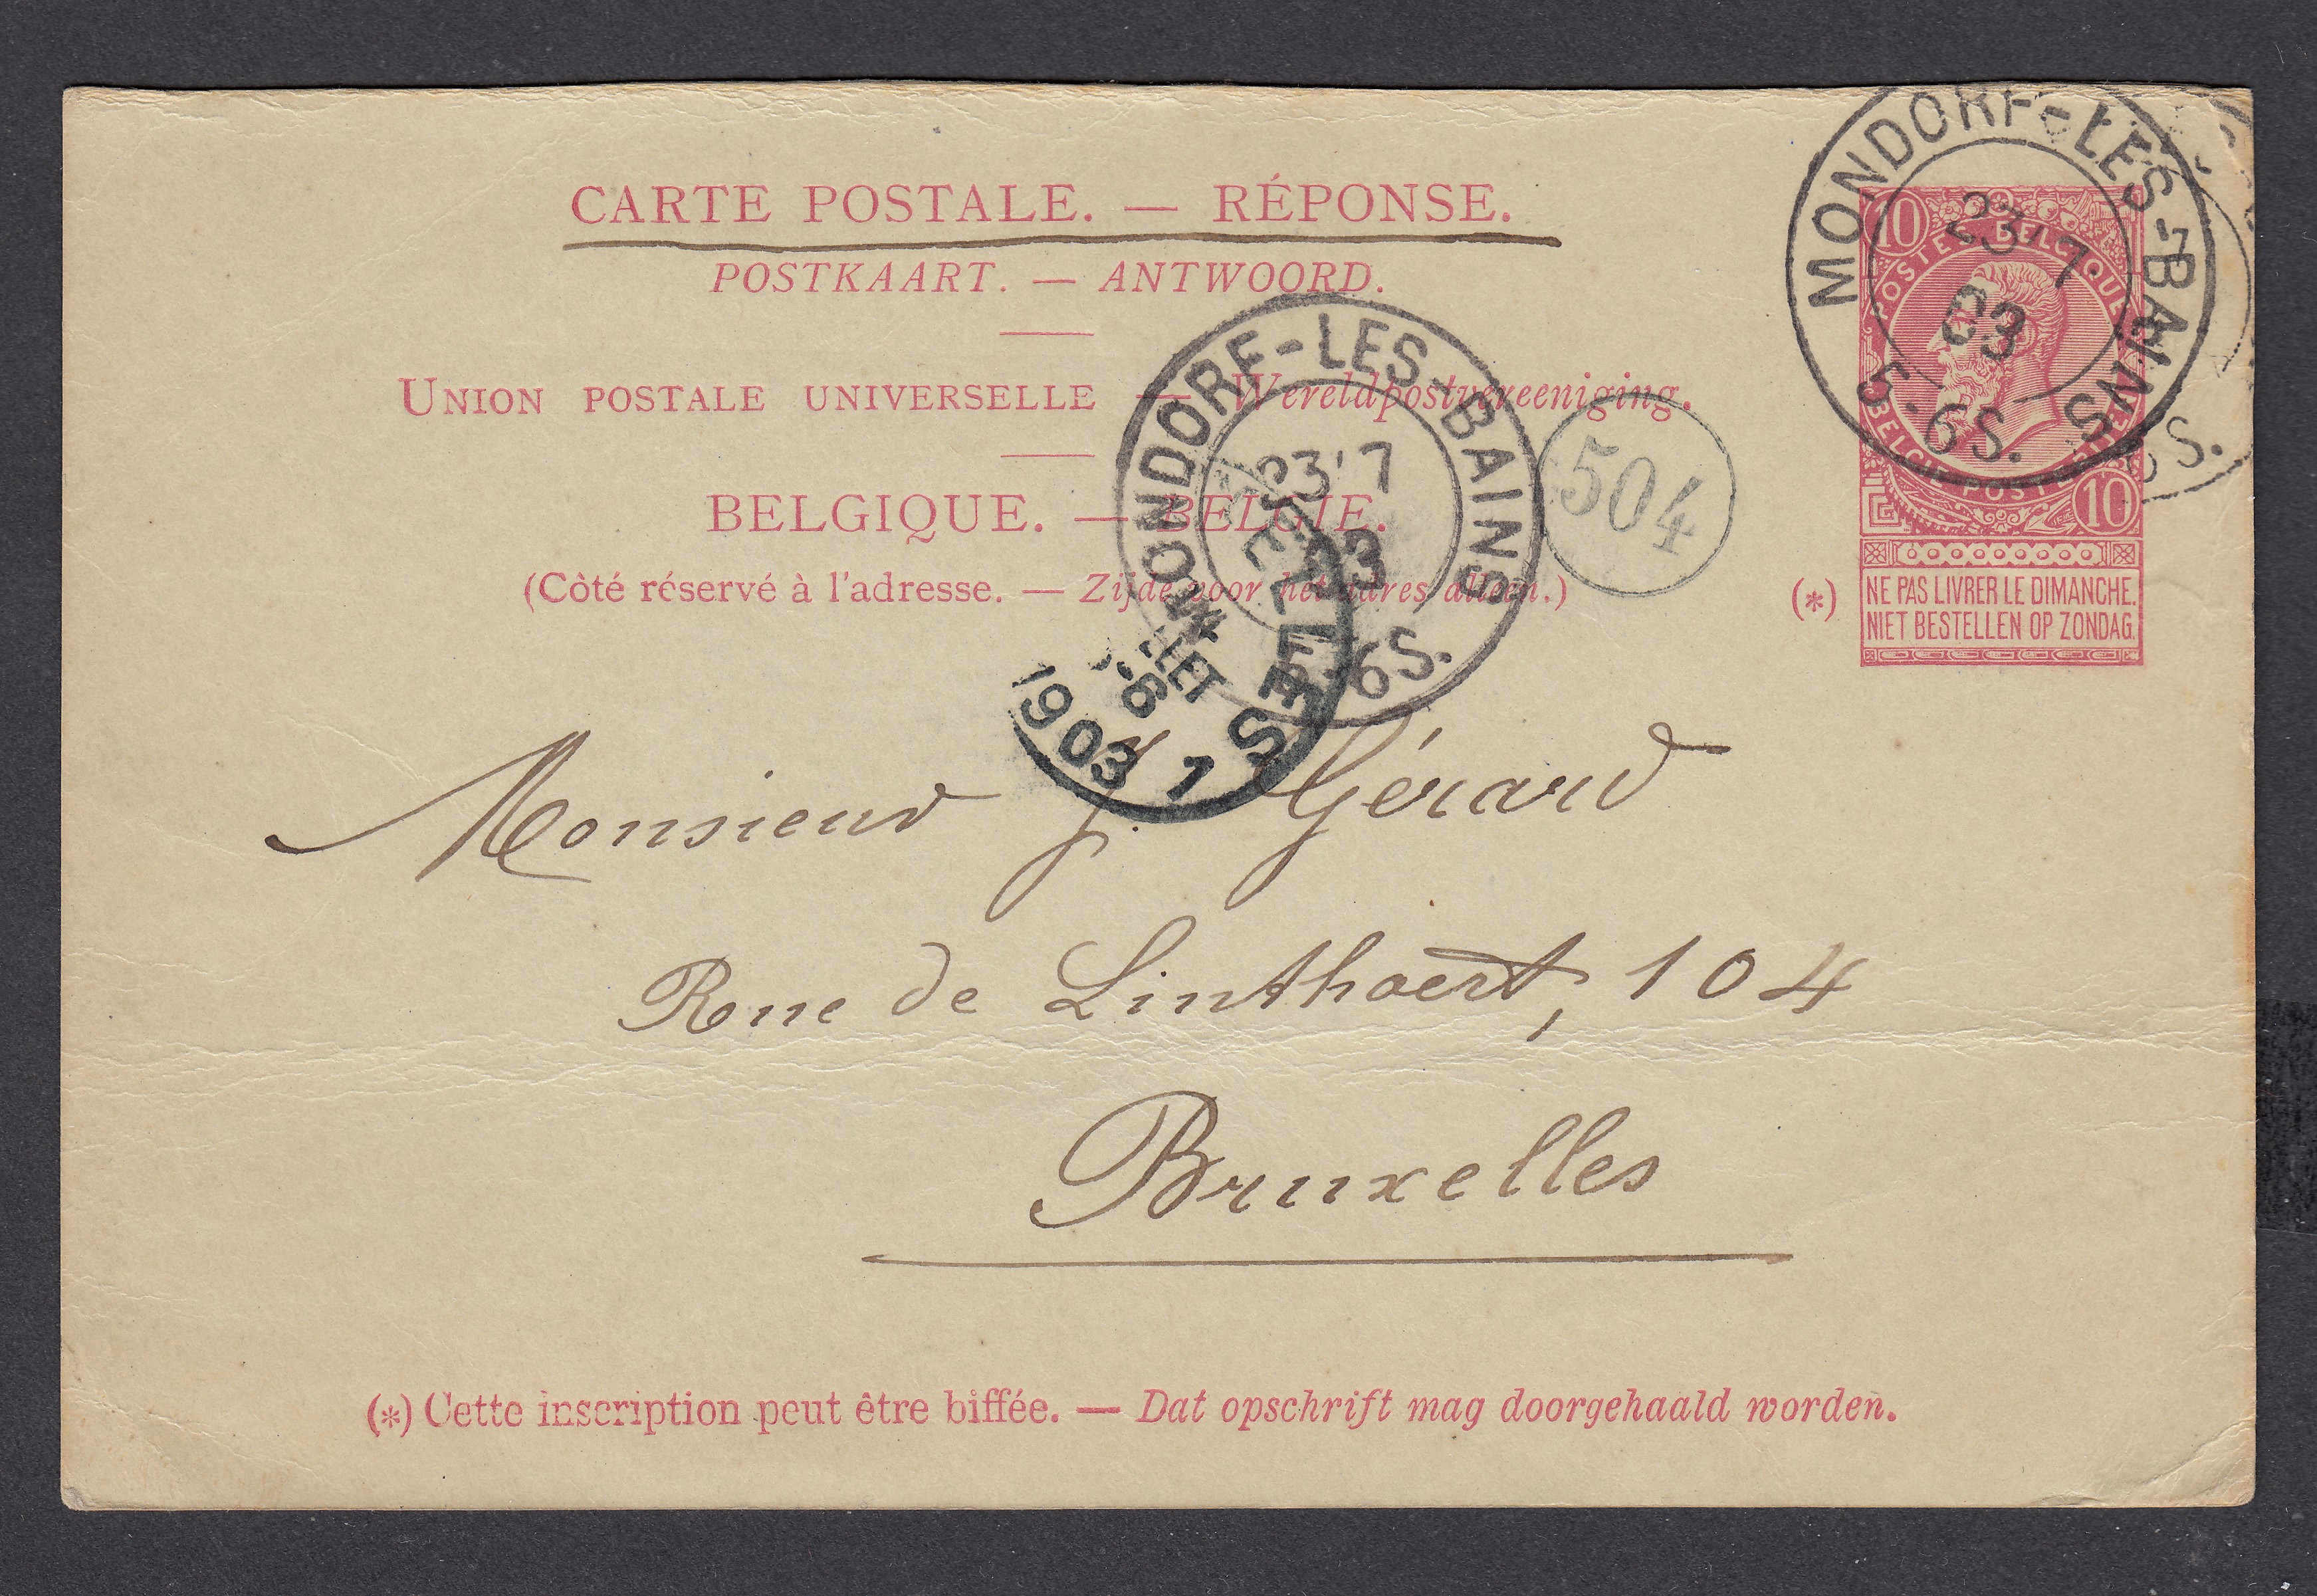 CARTE POSTALE. — RÉPONSE.
POSTKAART. — ANTWOORD.
UNION POSTALE UNIVERSELLE — Wereldpostvereeniging.
BELGIQUE. — BELGIE.
(Côté réservé à l'adresse. — Zijde voor het adres alleen.)
MONDORF-LES-BAINS
23 7
03
5-6S.
10
POSTES BELGIQUE
BELGIE POSTERIJEN
10
(*) NE PAS LIVRER LE DIMANCHE.
NIET BESTELLEN OP ZONDAG.
S.
MONDORF-LES-BAINS
23 7
03
5-6S.
504
1903
1
Monsieur J. Gérard
Rue de Linthoert, 104
Bruxelles
(*) Cette inscription peut être biffée. — Dat opschrift mag doorgehaald worden.